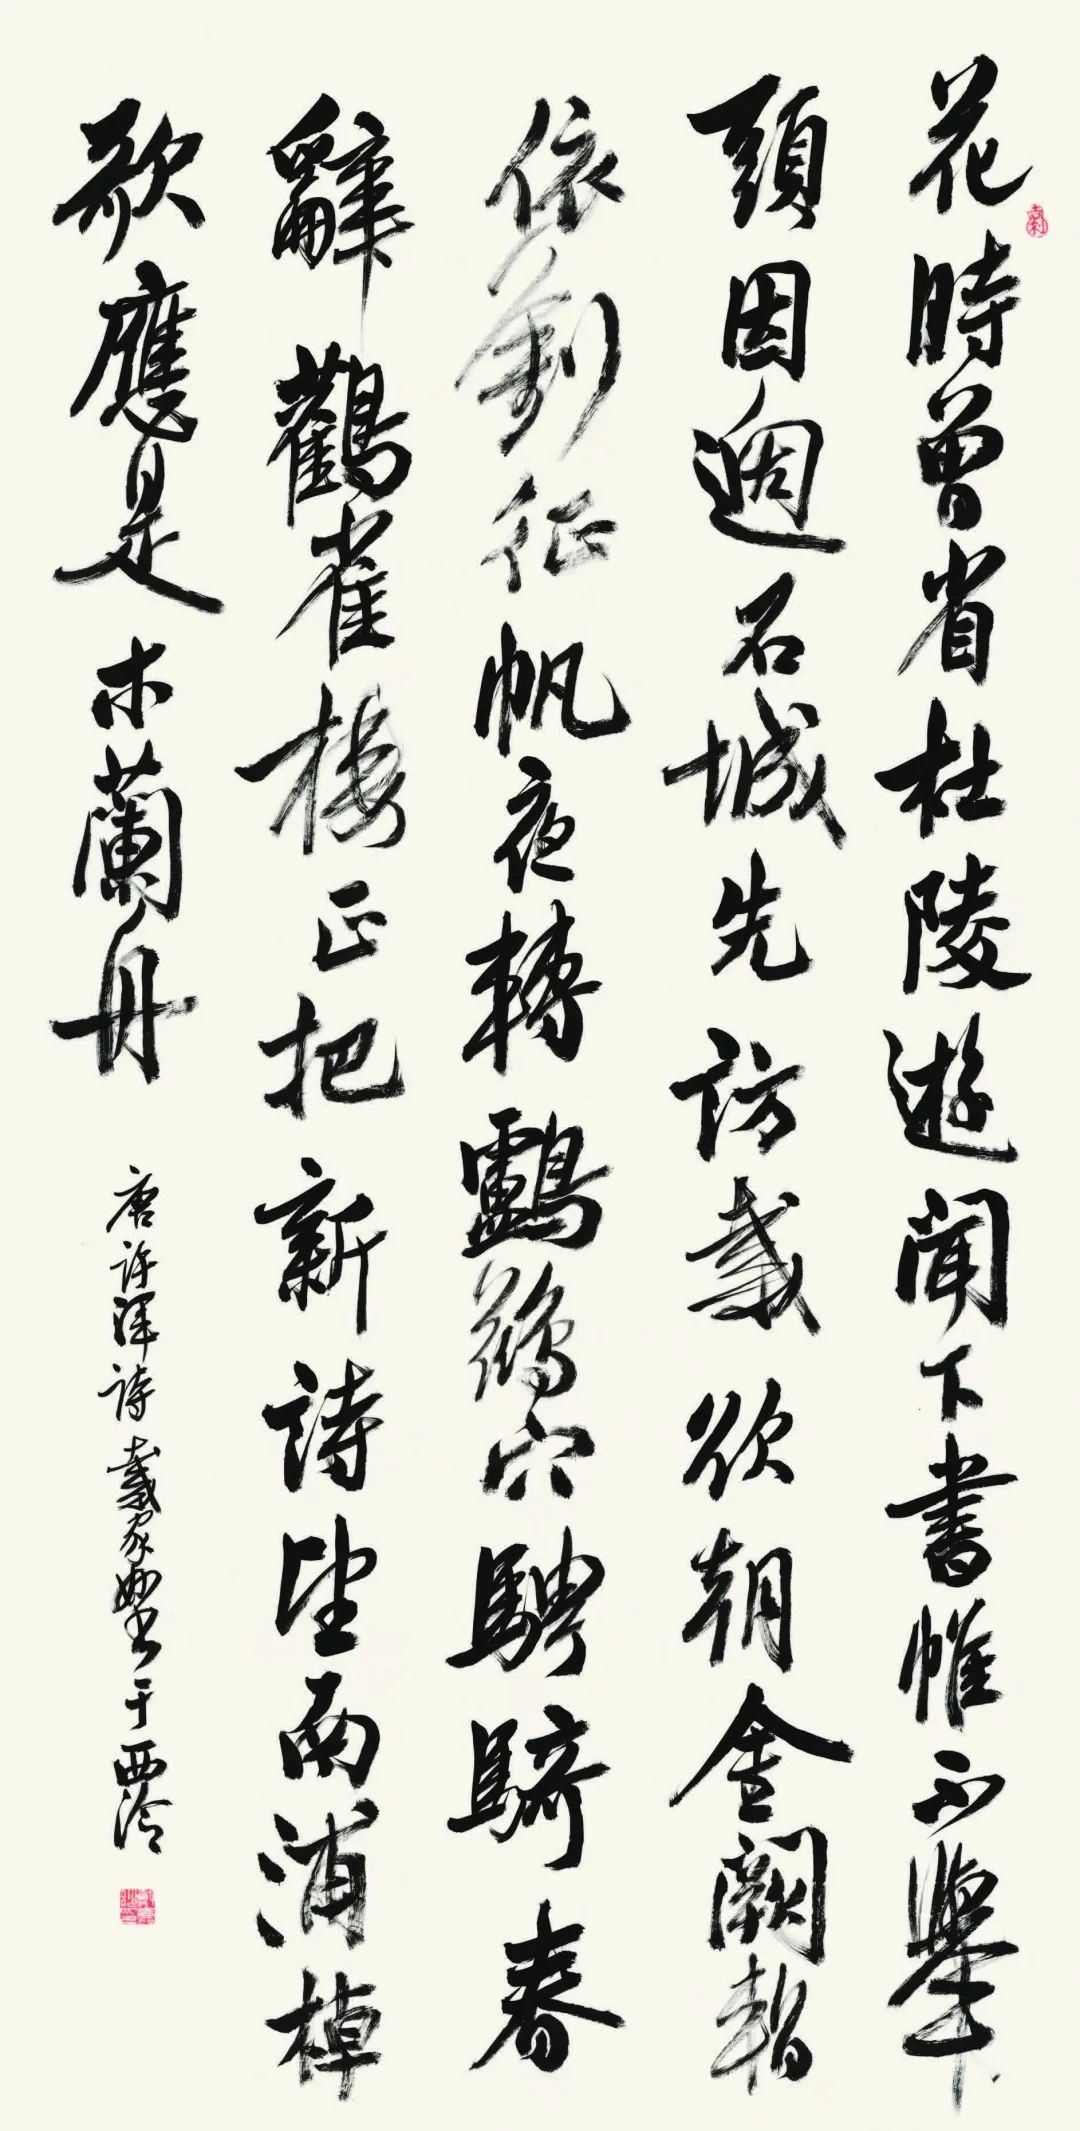 花時曾省杜陵遊聞下書帷不舉
頭因過石城先訪戴欲朝金闕暫
依劉征帆夜轉鸕鷀穴騁騎春
辭鸛雀樓正把新詩望南浦棹
歌應是木蘭舟
唐許渾詩戴家妙書于西泠